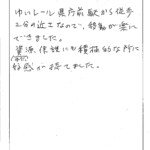 ゆいレール県庁前駅から徒歩
2分の近さなので、移動が楽に
できました。
資源、保性にも積極的な所に
好感が持てました。